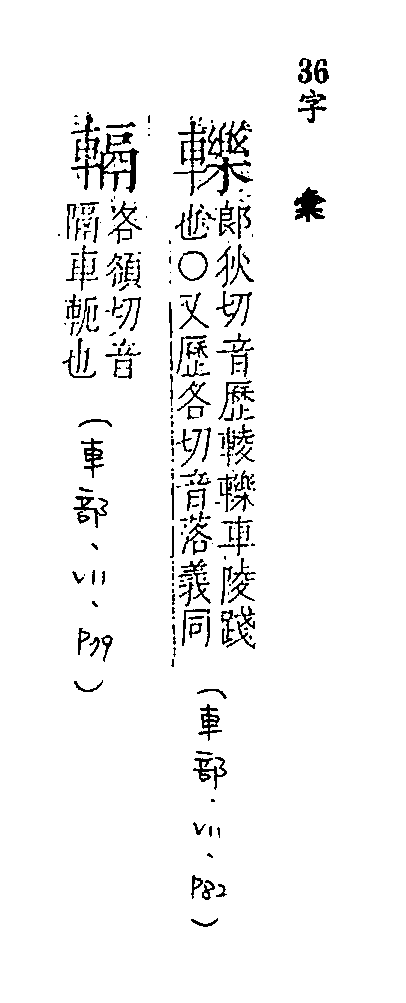 36
字彙
轢郎狄切音歷輘轢車陵踐
也○又歷各切音落義同
(車部、VII、P82)
輻各額切音
隔車軛也
(車部、VII、P79)